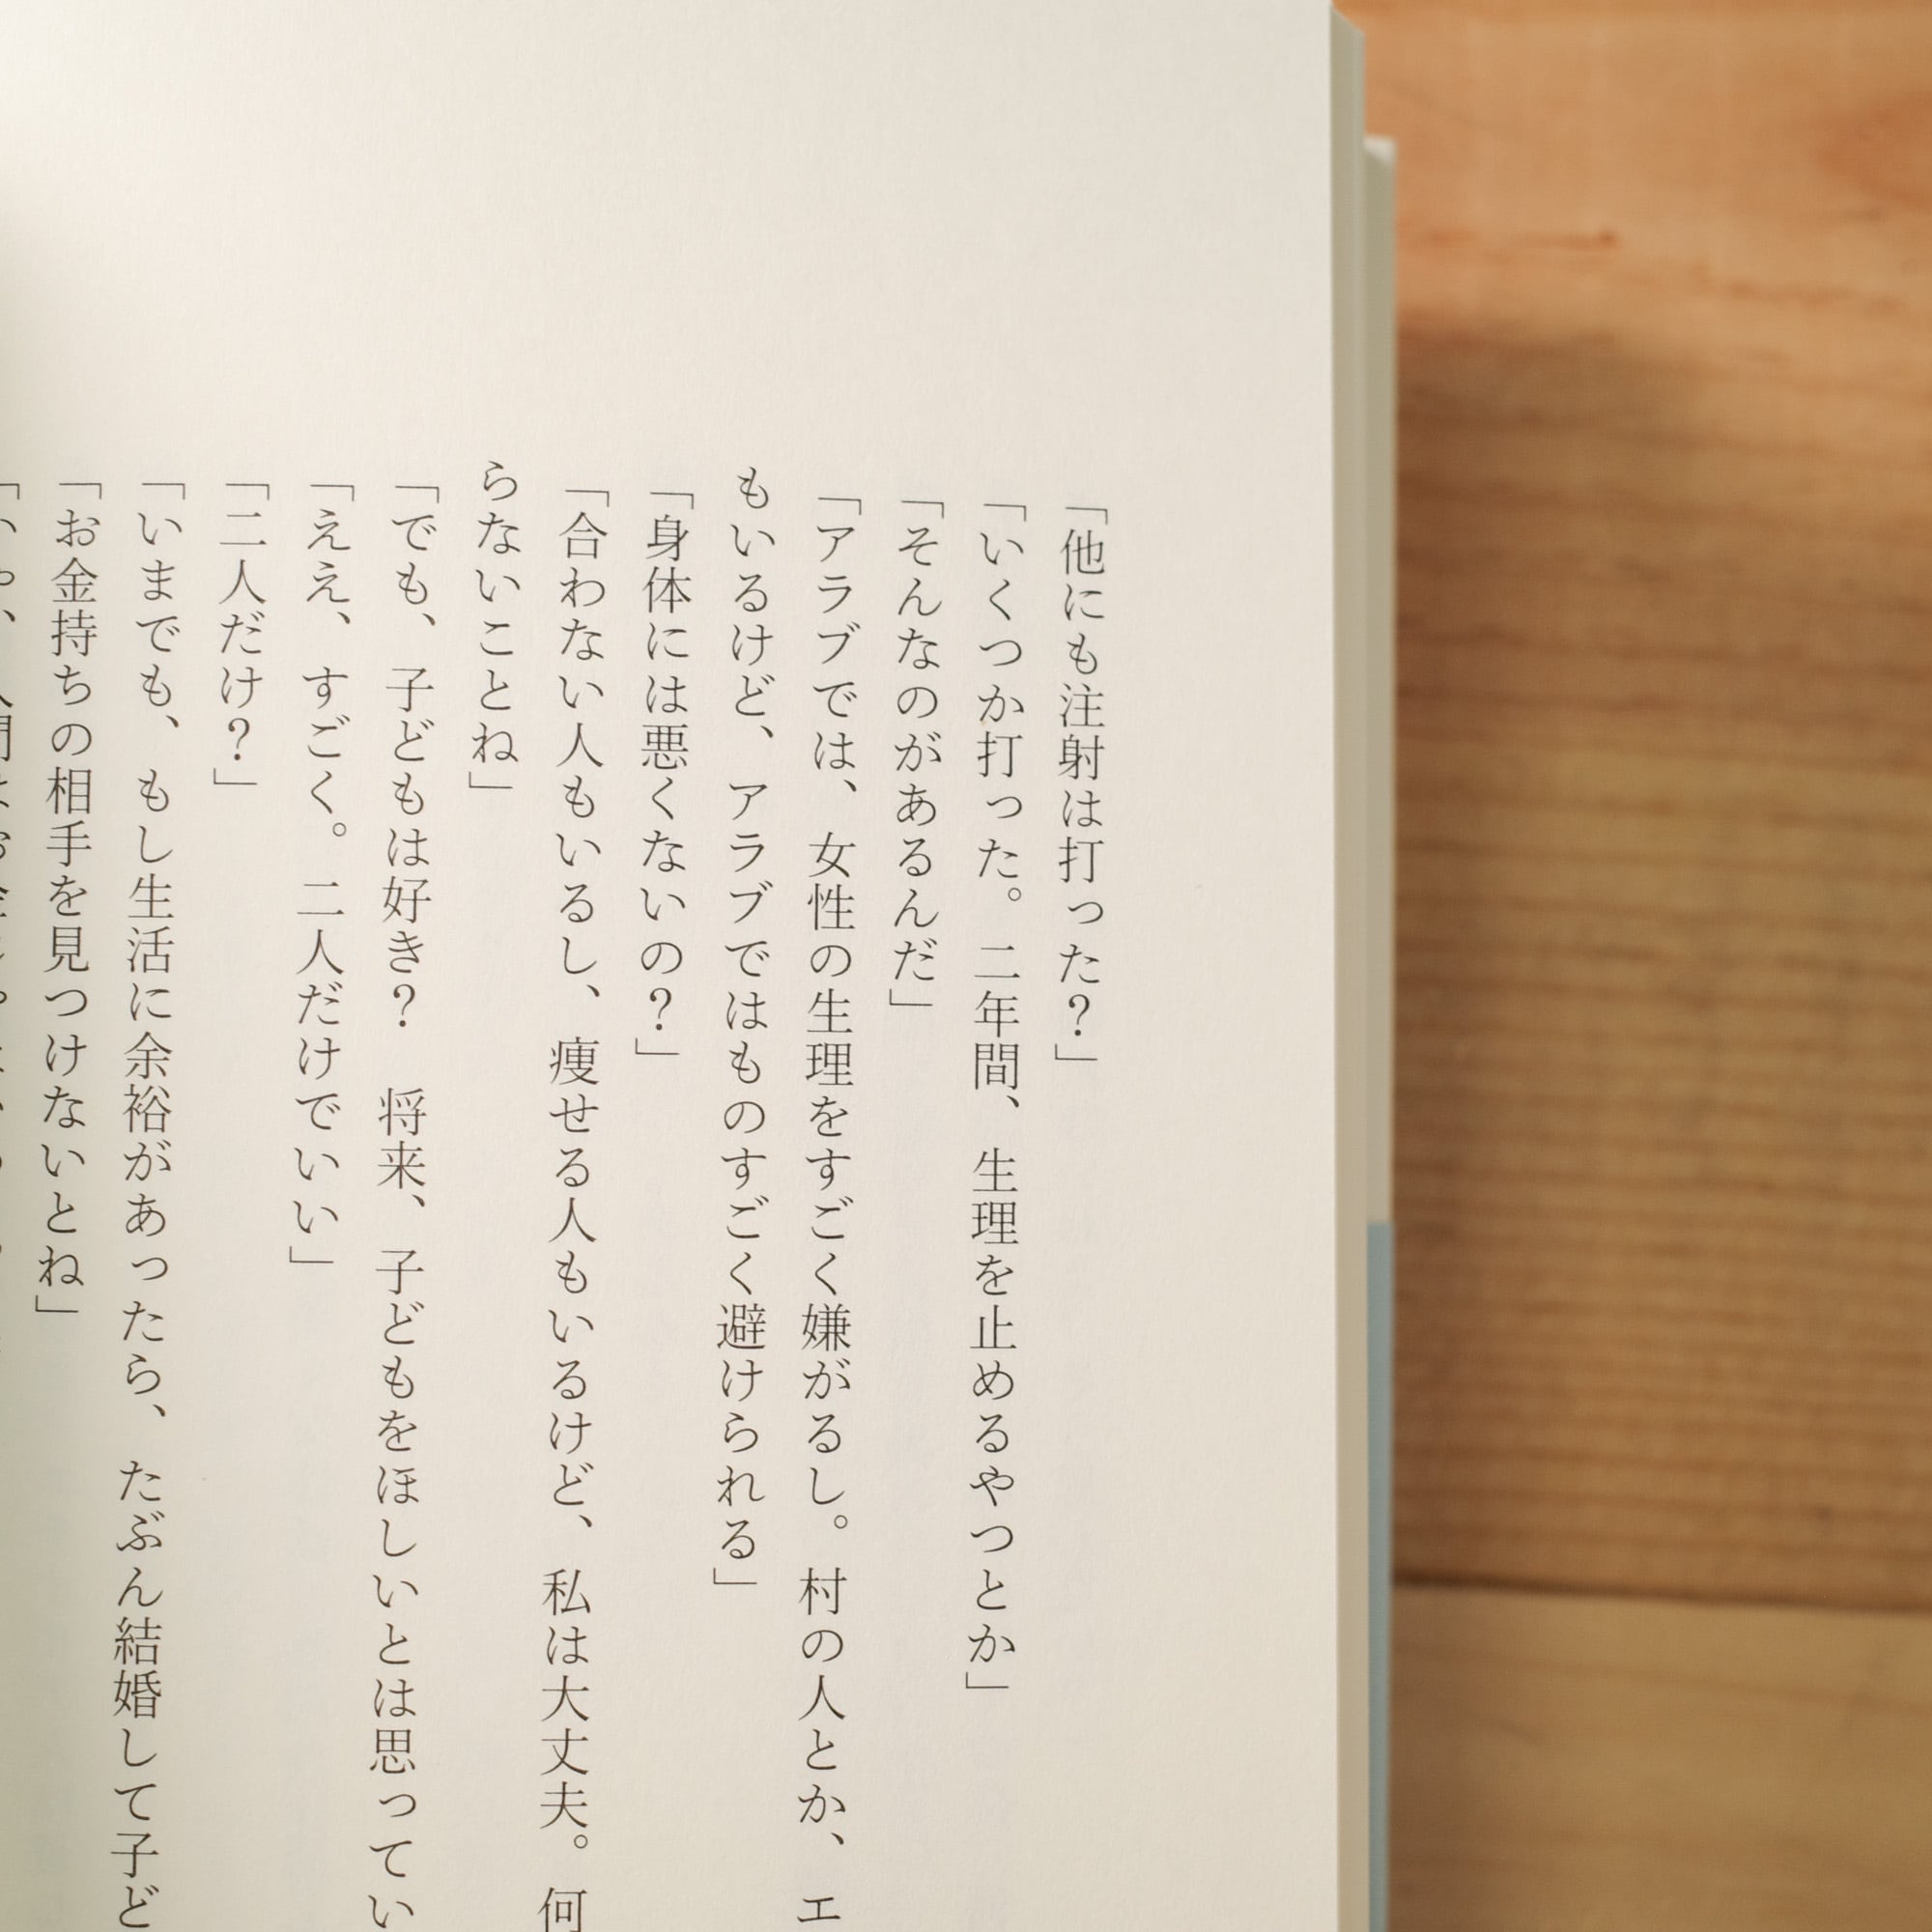 「他にも注射は打った？」
「いくつか打った。二年間、生理を止めるやつとか」
「そんなのがあるんだ」
「アラブでは、女性の生理をすごく嫌がるし。村の人とか、エ
もいるけど、アラブではものすごく避けられる」
「身体には悪くないの？」
「合わない人もいるし、痩せる人もいるけど、私は大丈夫。何
らないことね」
「でも、子どもは好き？　将来、子どもをほしいとは思ってい
「ええ、すごく。二人だけでいい」
「二人だけ？」
「いまでも、もし生活に余裕があったら、たぶん結婚して子ど
「お金持ちの相手を見つけないとね」